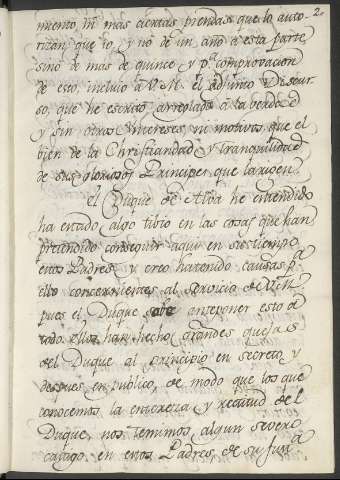 2.
miento, ni mas ciertas prendas que lo auto-
rizan, que yo, y no de un año a esta parte
sino de mas de quince y pª comprovacion
de esto, incluio a V. M. el adjunto Discur-
so, que he escrito arreglado a la verdad
y sin otros intereses, ni motivos, que el
bien de la Christiandad, y tranquilidad
de sus gloriosos Principes que la rigen.
El Duque de Alba he entendido
ha estado algo tibio en las cosas que han
pretendido conseguir aqui en su tiempo
estos Padres, y esto haviendo causas pª
ello concernientes al servicio de V. M.
pues el Duque sabe anteponer esto a
todo. Ellos han hecho grandes quejas
del Duque al principio en secreto, y
despues en publico, de modo que los que
conocemos la entereza y rectitud del
Duque, nos tememos algun severo
castigo en estos Padres, de su justª